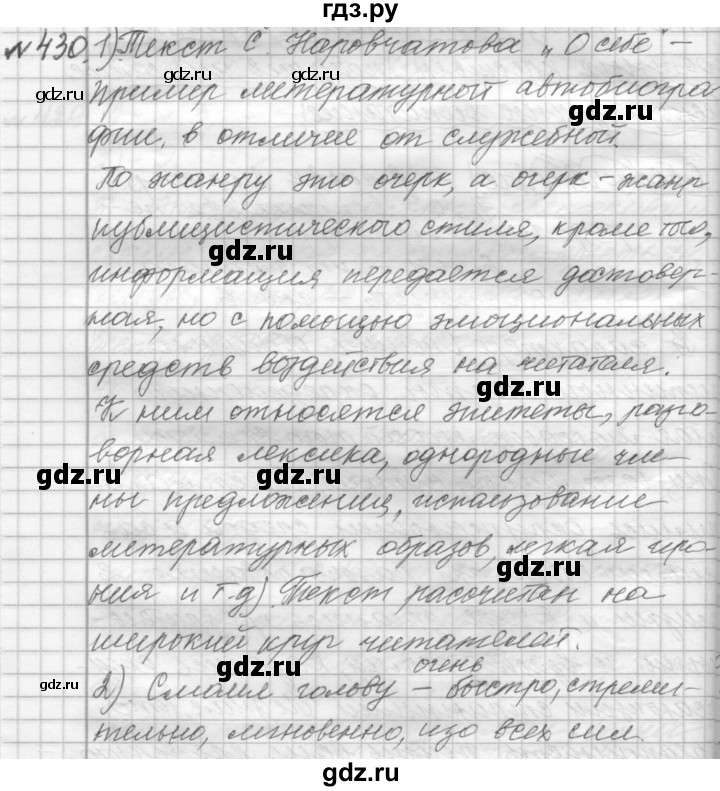 гдз.ру
№430. 1) Текст С. Наровчатова „О себе" –
gdz.ru gdz.ru
пример литературной автобиогра
gdz.ru
фии, в отличие от служебной.
По жанру это очерк, а очерк – жанр
публицистического стиля, кроме того,
gdz.ru
информация передается достовер-
ная, но с помощью эмоциональных
средств воздействия на читателя.
gdz.ru
К ним относятся эпитеты, разго-
ворная лексика, однородные чле-
gdz.ru gdz.ru
ны предложения, использование
литературных образов, легкая иро-
gdz.ru
ния и т.д). Текст рассчитан на
широкий круг читателей.
gdz.ru
очень
2). Сломя голову – быстро, стреми-
gdz.ru gdz.ru
тельно, мгновенно, изо всех сил.
gdz.ru gdz.ru